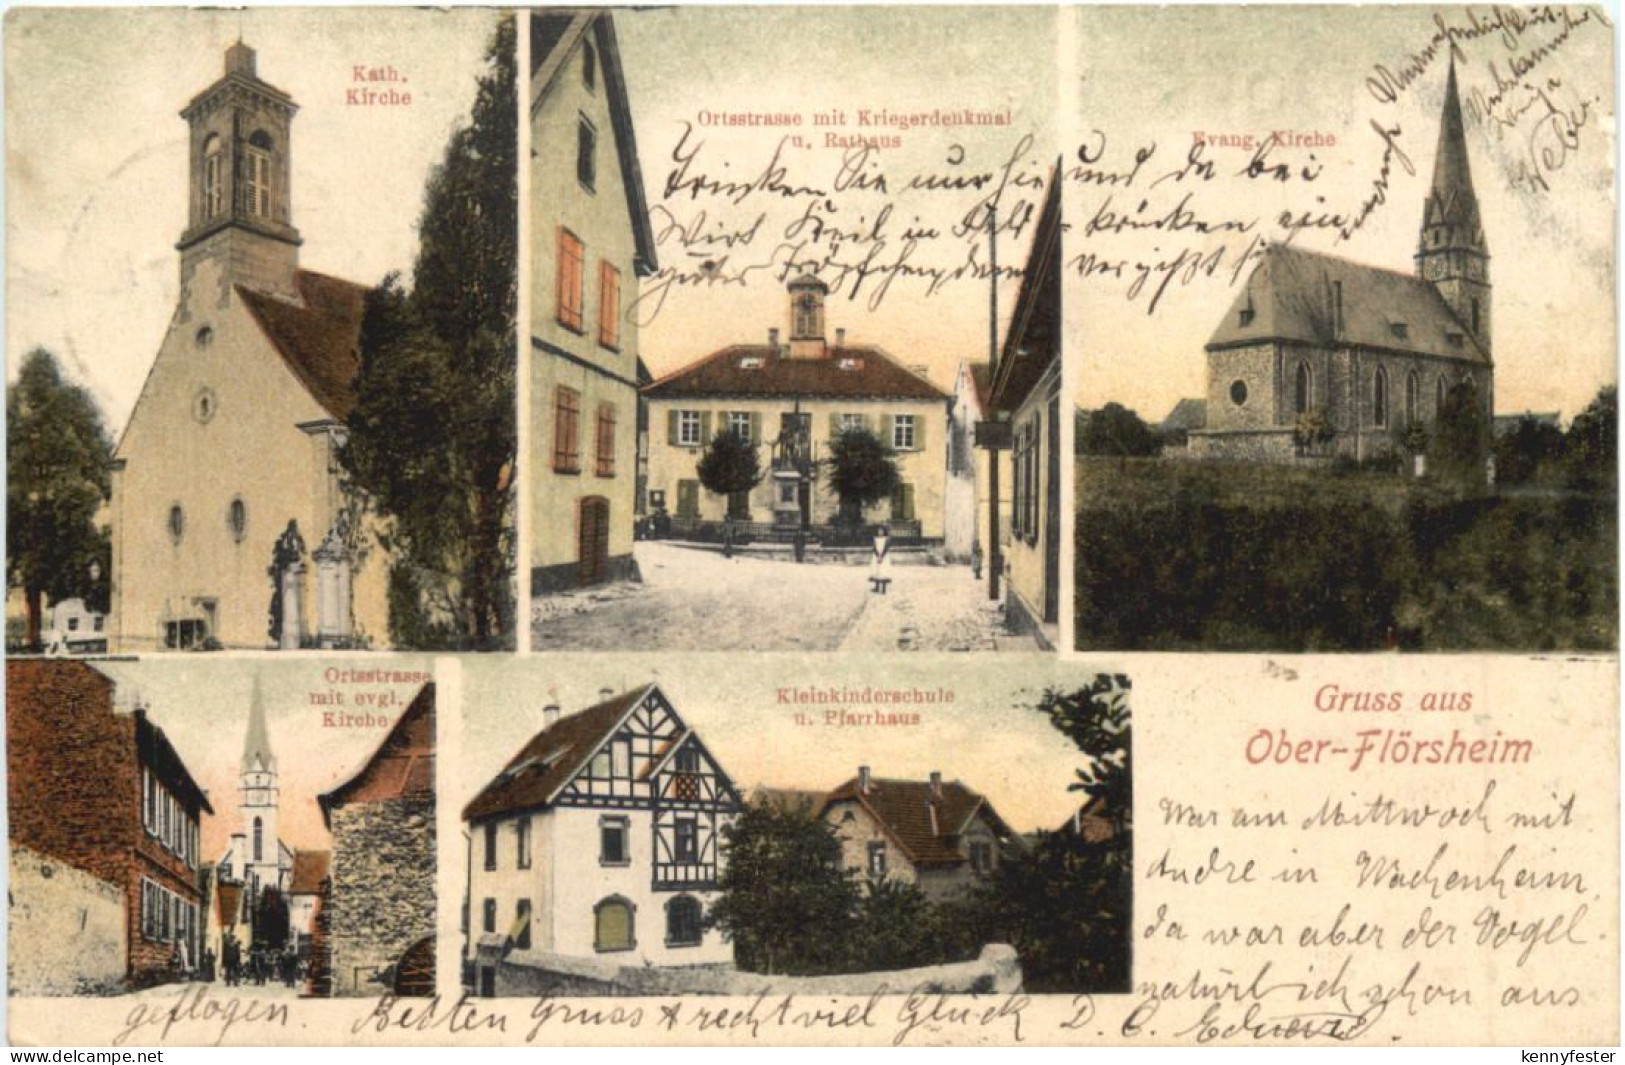 Kath.
Kirche
Ortsstrasse mit Kriegerdenkmal
u. Rathaus
Evang. Kirche
Trinken Sie nur hie und da bei
Wirt Keil in Feld-brücken ein
gutes Tröpfchen, dann vergißt
Weber.
Ortsstrasse
mit evgl.
Kirche
Kleinkinderschule
u. Pfarrhaus
Gruss aus
Ober-Flörsheim
War am Mittwoch mit
Andre in Wachenheim,
da war aber der Vogel
natürlich schon aus
geflogen. Besten Gruss & recht viel Glück D. C.
kennyfester